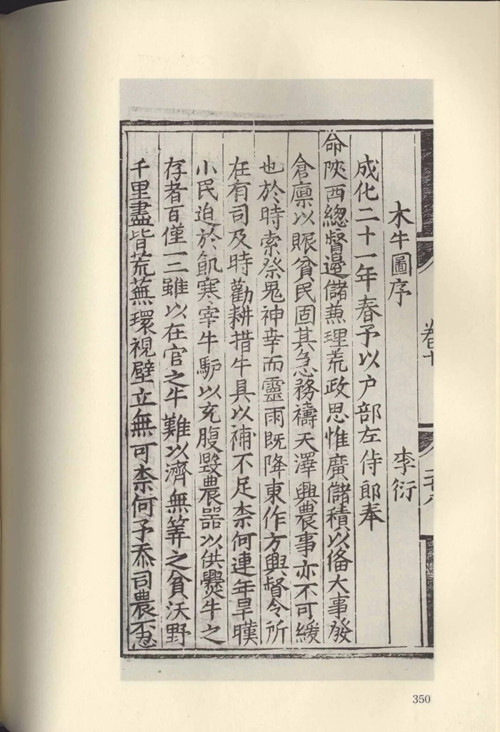 木牛圖序 李衍
成化二十一年春予以户部左侍郎奉
命陝西總督邊儲蕪理荒政思惟廣儲積以俻大事發
倉廪以賑貧民固其急務禱天澤興農事亦不可緩
也於時索祭鬼神幸而靈雨既降東作方興督令所
在有司及時勸耕措牛具以補不足柰何連年旱暵
小民迫於飢寒宰牛馿以充腹毀農器以供爨牛之
存者百僅一二雖以在官之牛難以濟無筭之貧沃野
千里盡皆荒蕪環視壁立無可柰何予忝司農
350